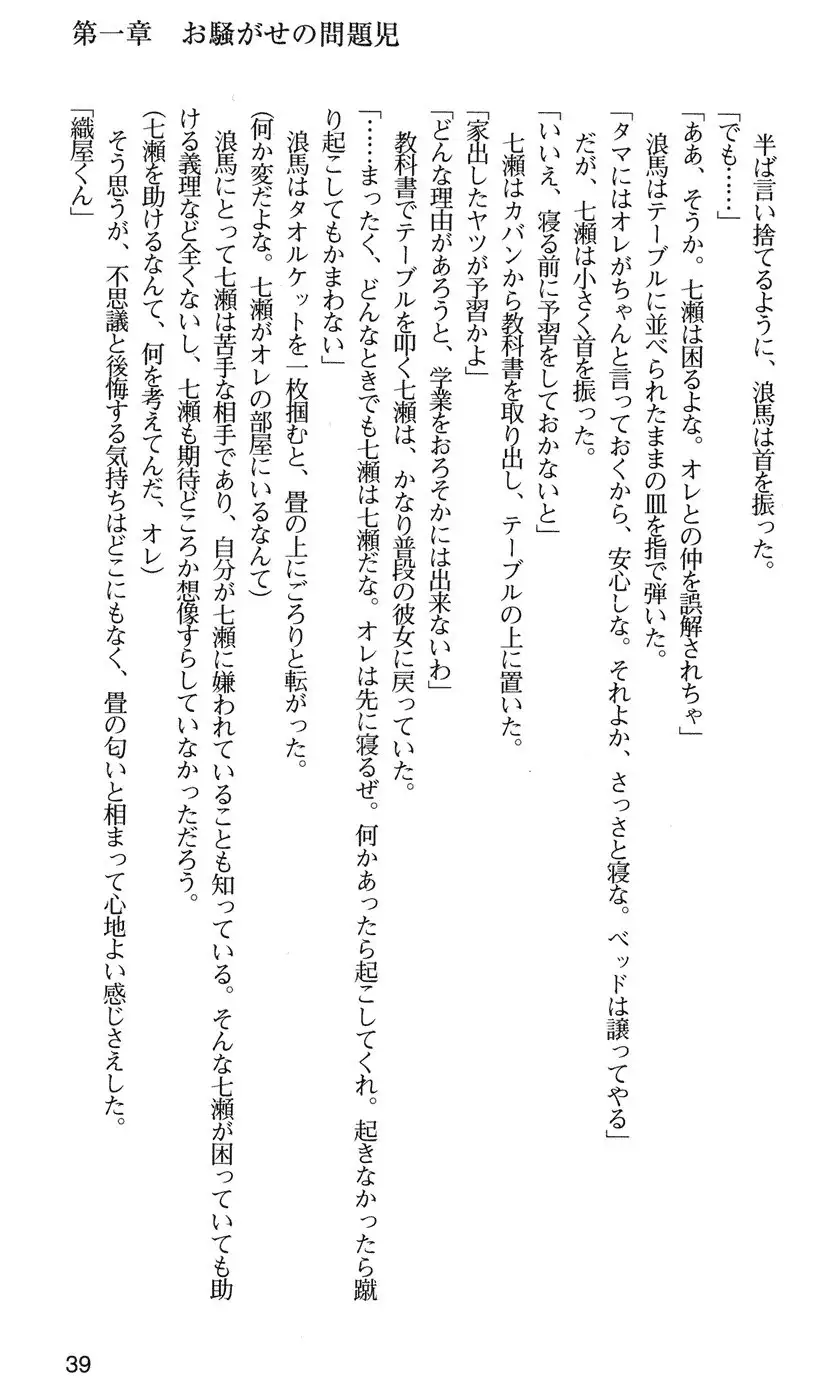 第一章　お騒がせの問題児
　半ば言い捨てるように、浪馬は首を振った。
「でも……」
「ああ、そうか。七瀬は困るよな。オレとの仲を誤解されちゃ」
　浪馬はテーブルに並べられたままの皿を指で弾いた。
「タマにはオレがちゃんと言っておくから、安心しな。それよか、さっさと寝な。ベッドは譲ってやる」
　だが、七瀬は小さく首を振った。
「いいえ、寝る前に予習をしておかないと」
　七瀬はカバンから教科書を取り出し、テーブルの上に置いた。
「家出したヤツが予習かよ」
「どんな理由があろうと、学業をおろそかには出来ないわ」
　教科書でテーブルを叩く七瀬は、かなり普段の彼女に戻っていた。
「……まったく、どんなときでも七瀬は七瀬だな。オレは先に寝るぜ。何かあったら起こしてくれ。起きなかったら蹴
り起こしてもかまわない」
　浪馬はタオルケットを一枚掴むと、畳の上にごろりと転がった。
(何か変だよな。七瀬がオレの部屋にいるなんて)
　浪馬にとって七瀬は苦手な相手であり、自分が七瀬に嫌われていることも知っている。そんな七瀬が困っていても助
ける義理など全くないし、七瀬も期待どころか想像すらしていなかっただろう。
(七瀬を助けるなんて、何を考えてんだ、オレ)
　そう思うが、不思議と後悔する気持ちはどこにもなく、畳の匂いと相まって心地よい感じさえした。
「織屋くん」
39